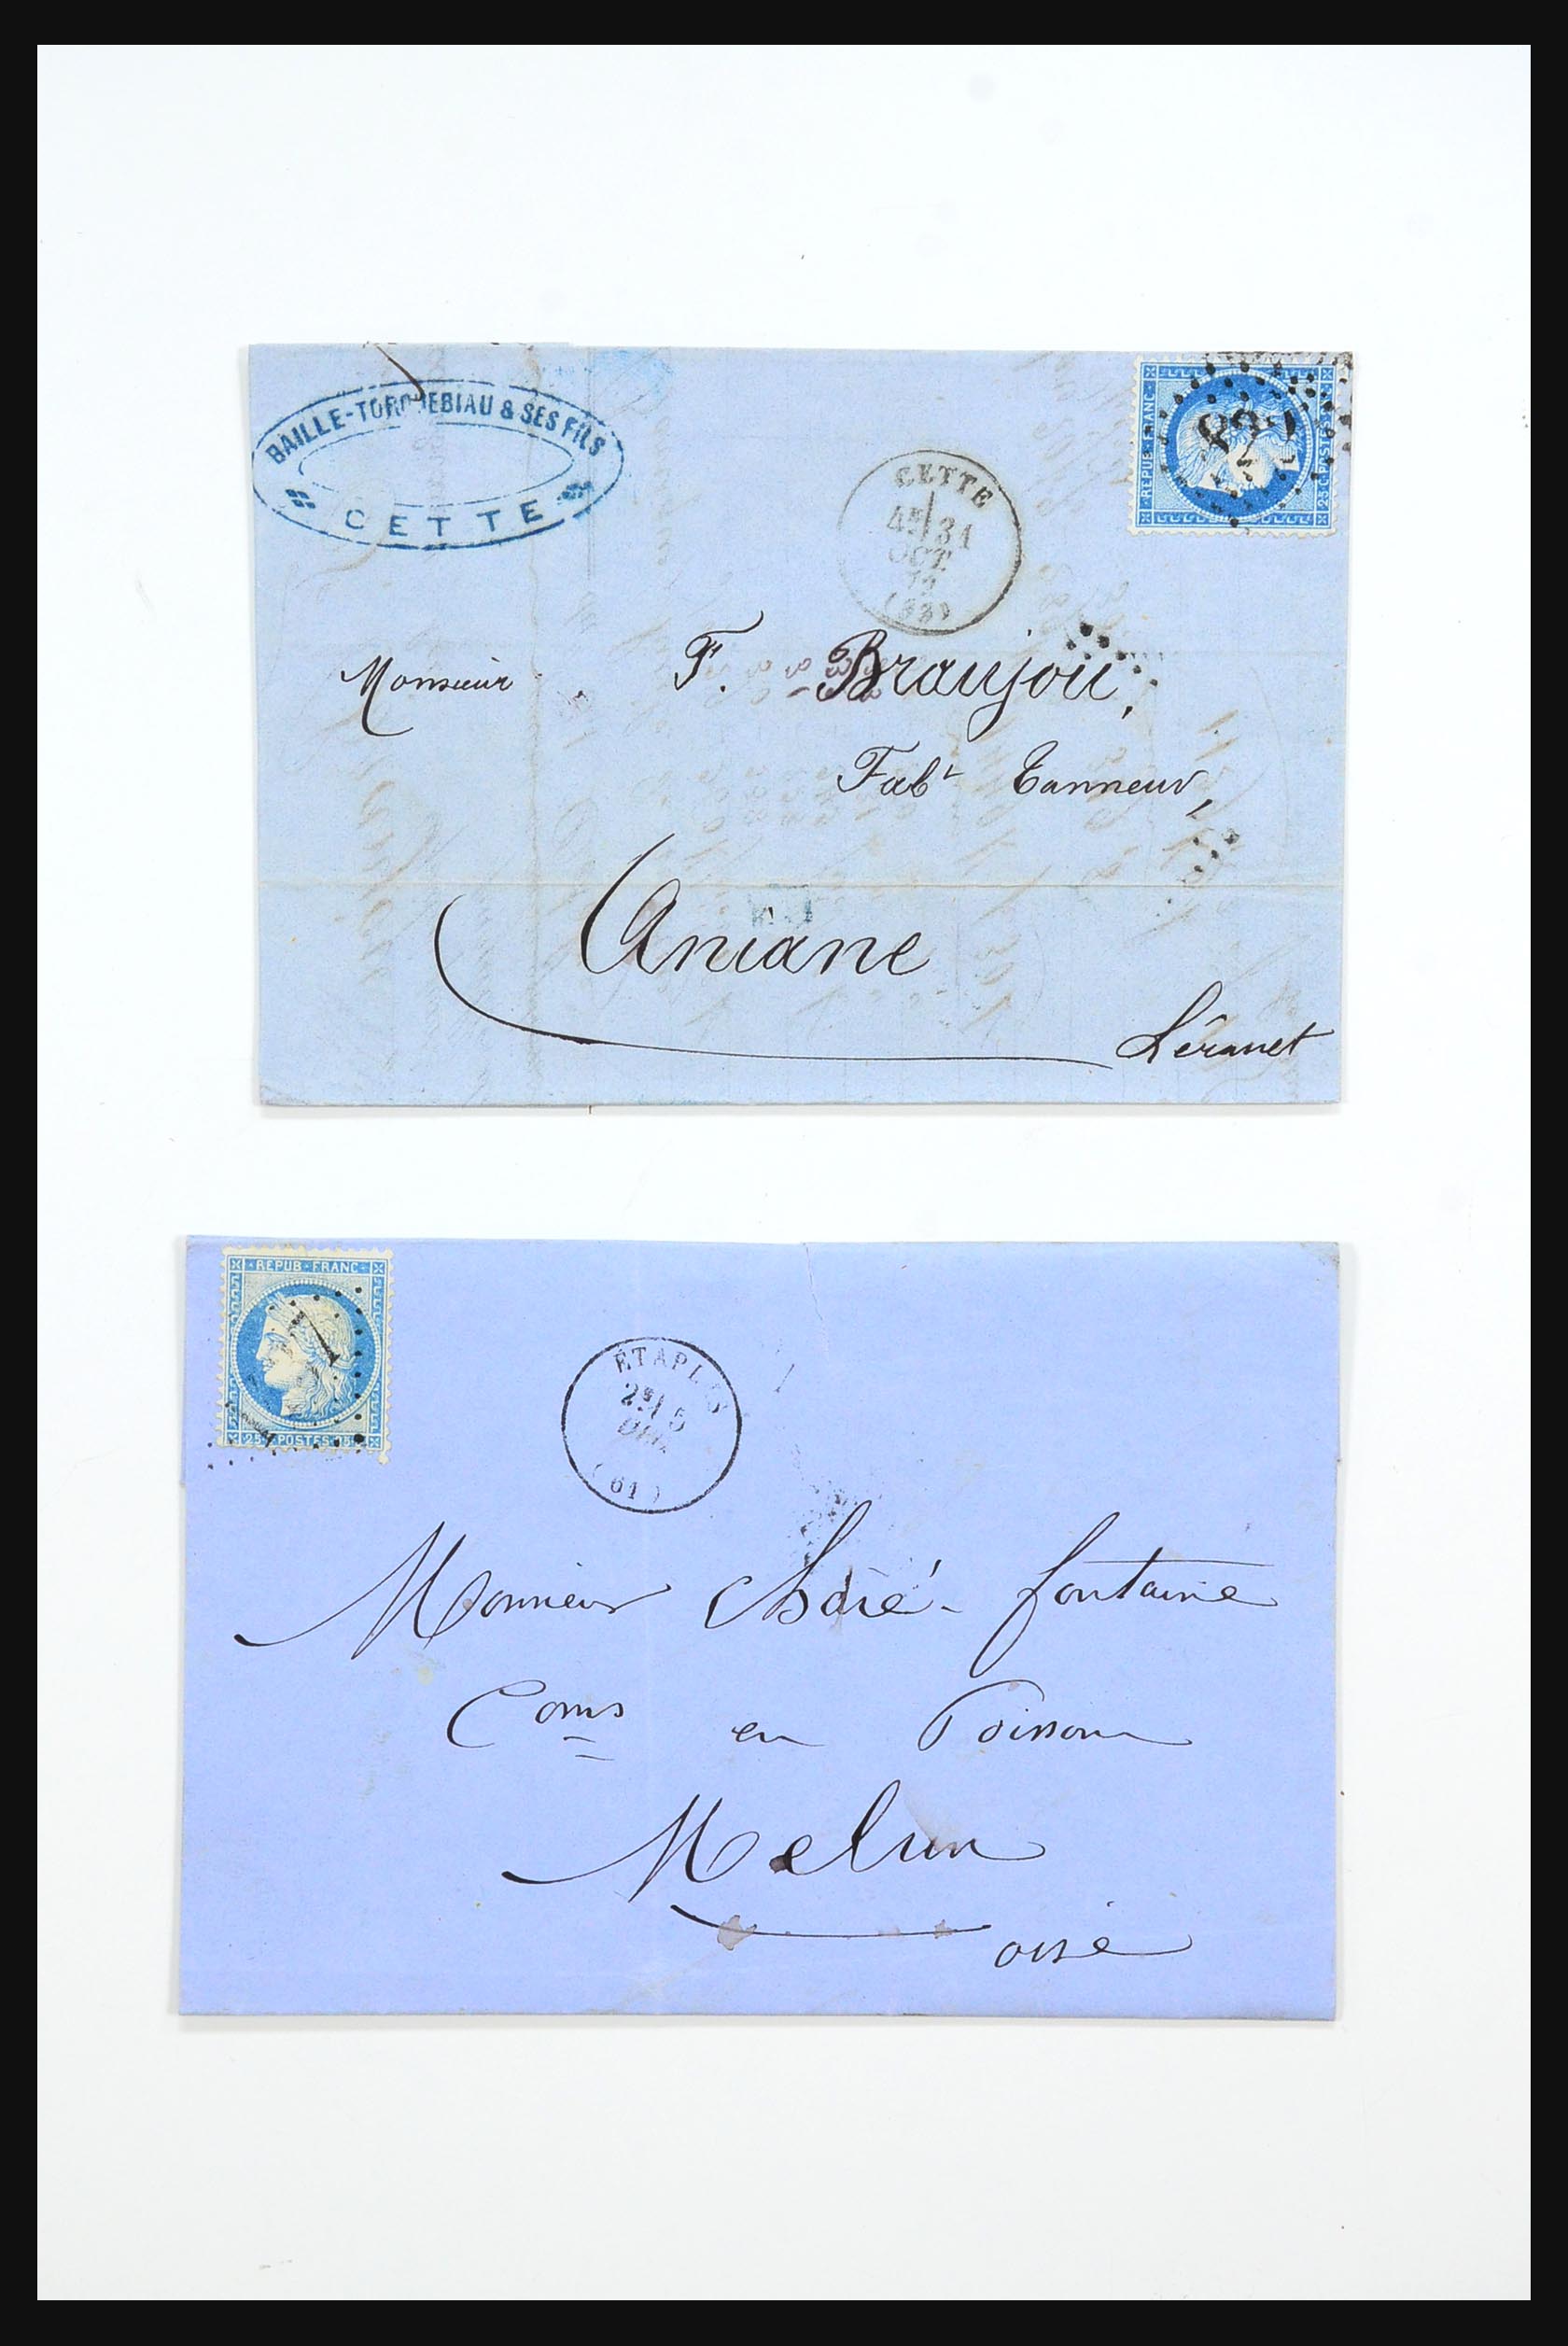 BAILLE-TORQUEBIAU & SES FILS
CETTE
CETTE
4E/31
OCT.
72
(33)
REPUB. FRANC.
25 C. POSTES
Monsieur F. Braujou,
Fabt Tanneur,
Aniane
Hérault
REPUB • FRANC
25 POSTES
ÉTAPLES
2E 5
DEC.
(61)
Monsieur fontaine
Coms en Poisson
Melun
oise